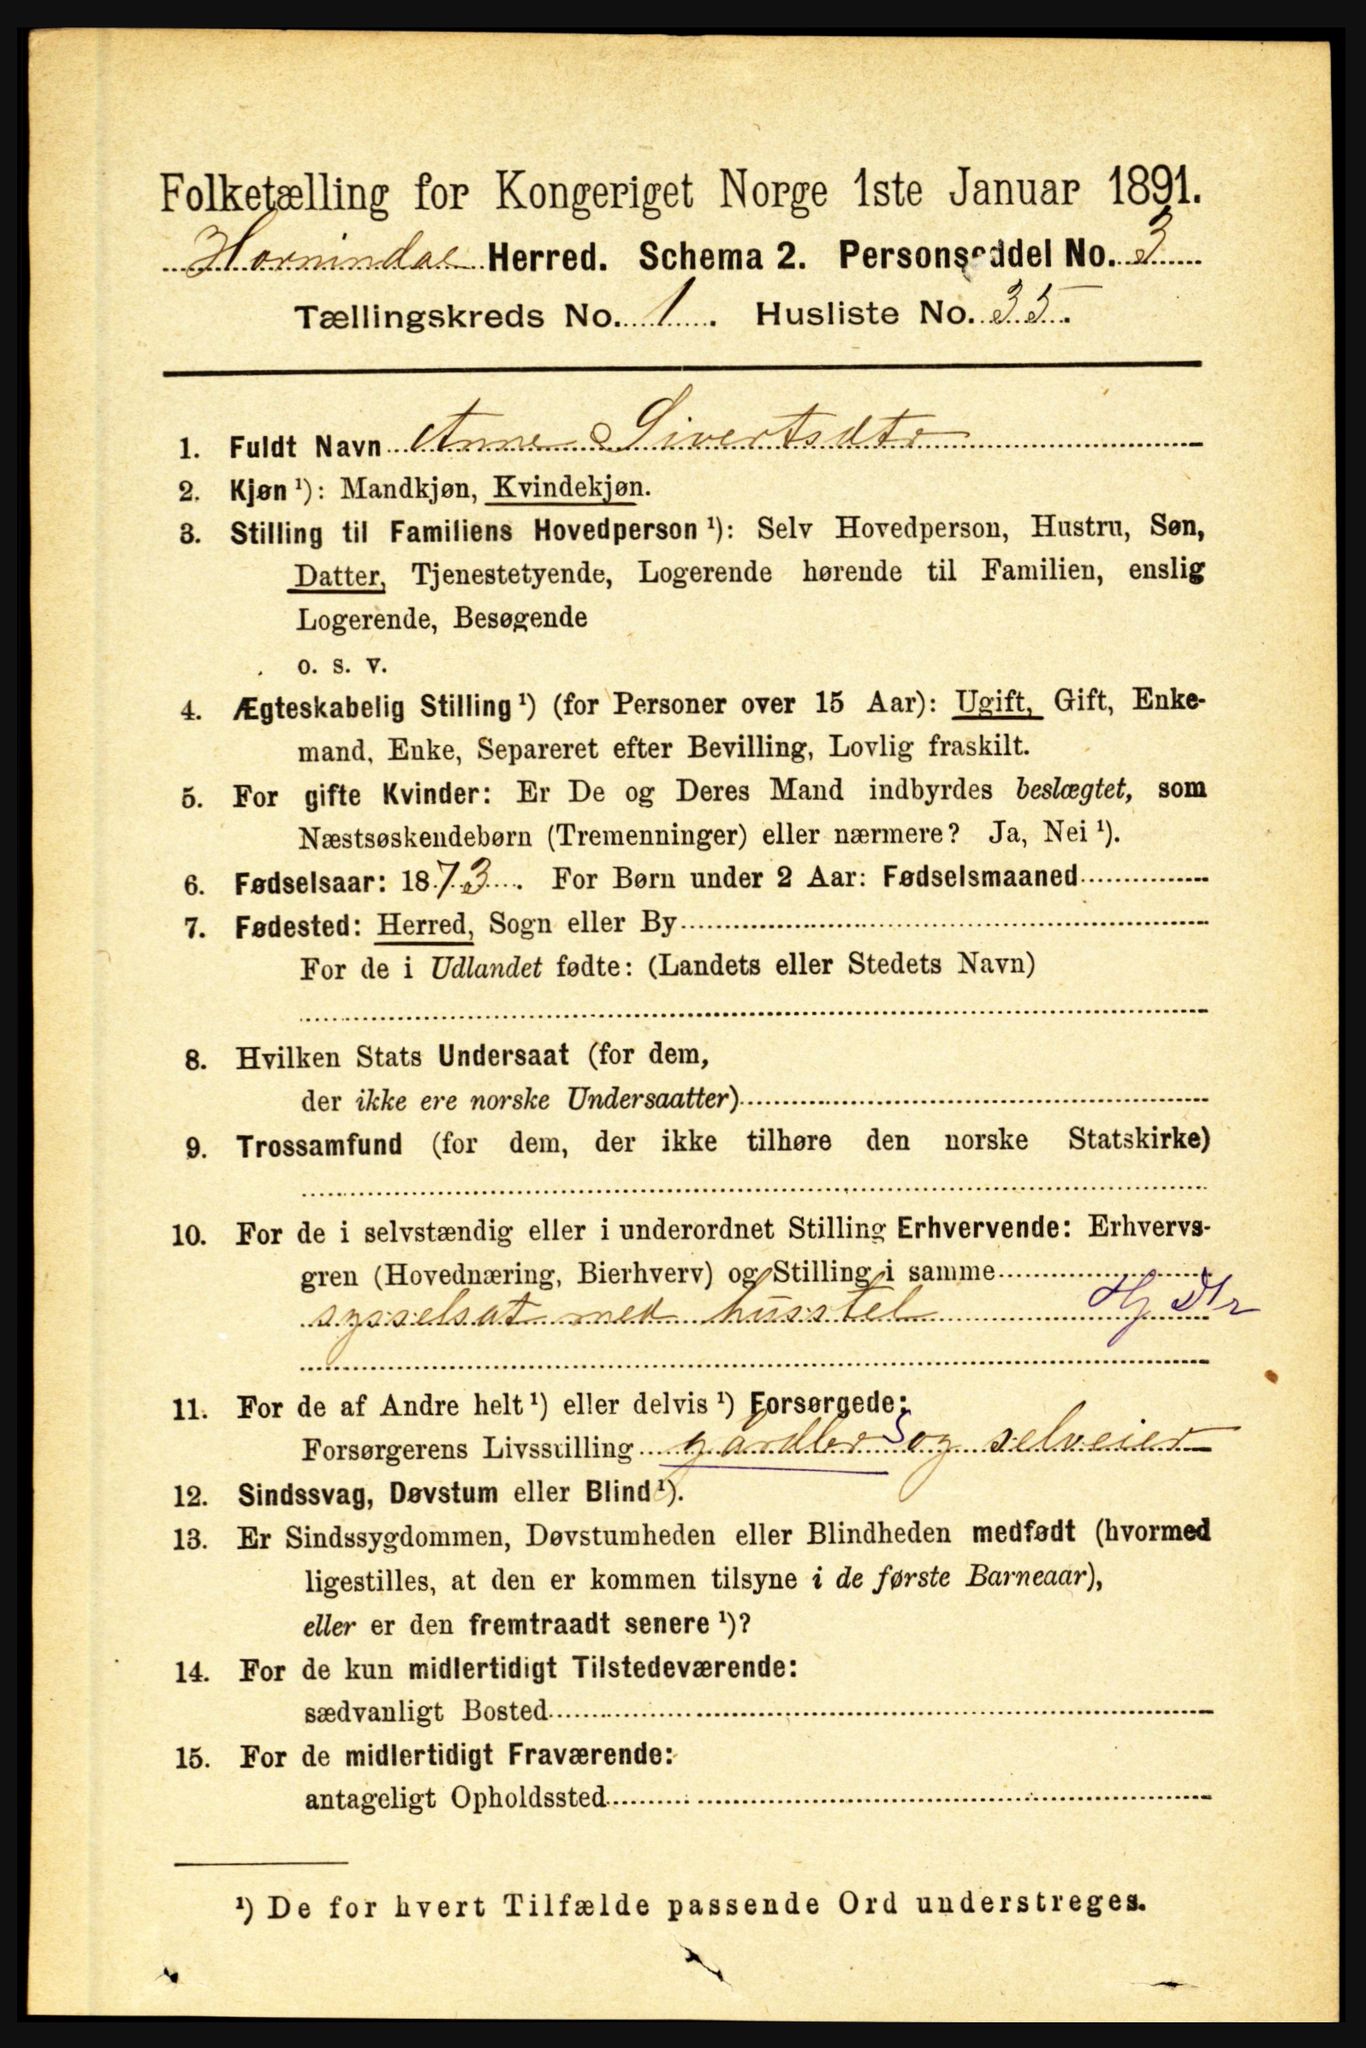 Folketælling for Kongeriget Norge 1ste Januar 1891.
Hornindal Herred. Schema 2. Personseddel No. 3
Tællingskreds No. 1. Husliste No. 35.
1. Fuldt Navn Anne Sivertsdtr
2. Kjøn ¹): Mandkjøn, Kvindekjøn.
3. Stilling til Familiens Hovedperson ¹): Selv Hovedperson, Hustru, Søn,
Datter, Tjenestetyende, Logerende hørende til Familien, enslig
Logerende, Besøgende
o. s. v.
4. Ægteskabelig Stilling ¹) (for Personer over 15 Aar): Ugift, Gift, Enke-
mand, Enke, Separeret efter Bevilling, Lovlig fraskilt.
5. For gifte Kvinder: Er De og Deres Mand indbyrdes beslægtet, som
Næstsøskendebørn (Tremenninger) eller nærmere? Ja, Nei ¹).
6. Fødselsaar: 1873. For Børn under 2 Aar: Fødselsmaaned
7. Fødested: Herred, Sogn eller By
For de i Udlandet fødte: (Landets eller Stedets Navn)
8. Hvilken Stats Undersaat (for dem,
der ikke ere norske Undersaatter)
9. Trossamfund (for dem, der ikke tilhøre den norske Statskirke)
10. For de i selvstændig eller i underordnet Stilling Erhvervende: Erhvervs-
gren (Hovednæring, Bierhverv) og Stilling i samme
sysselsat med husstel Hj Dtr
11. For de af Andre helt ¹) eller delvis ¹) Forsørgede:
Forsørgerens Livsstilling gårdbr S og selveier
12. Sindssvag, Døvstum eller Blind ¹).
13. Er Sindssygdommen, Døvstumheden eller Blindheden medfødt (hvormed
ligestilles, at den er kommen tilsyne i de første Barneaar),
eller er den fremtraadt senere ¹)?
14. For de kun midlertidigt Tilstedeværende:
sædvanligt Bosted
15. For de midlertidigt Fraværende:
antageligt Opholdssted
¹) De for hvert Tilfælde passende Ord understreges.